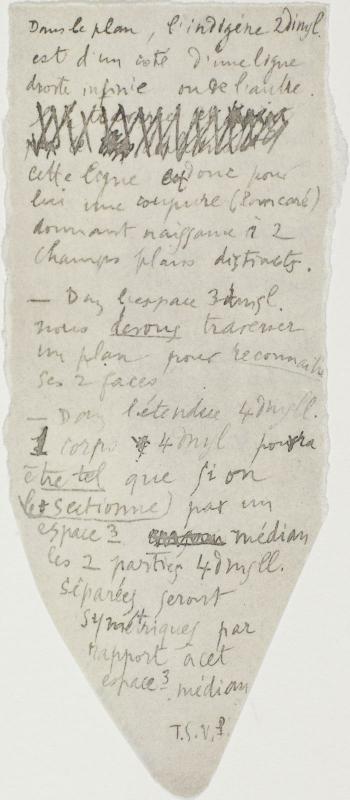 Dans le plan, l'indigène 2dimsl.
est d'un côté d'une ligne
droite infinie ou de l'autre.
cette ligne est donc pour
lui une coupure (Poincaré)
donnant naissance à 2
champs plans distincts.
— Dans l'espace 3dmsl.
nous devons traverser
un plan pour reconnaître
ses 2 faces
— Dans l'étendue 4dmsll.
1 corps 4dmsl pourra
être tel que si on
le sectionne) par un
espace 3 médian
les 2 parties 4dmsll.
séparées seront
symétriques par
rapport à cet
espace 3 médian
T.S.V.P.